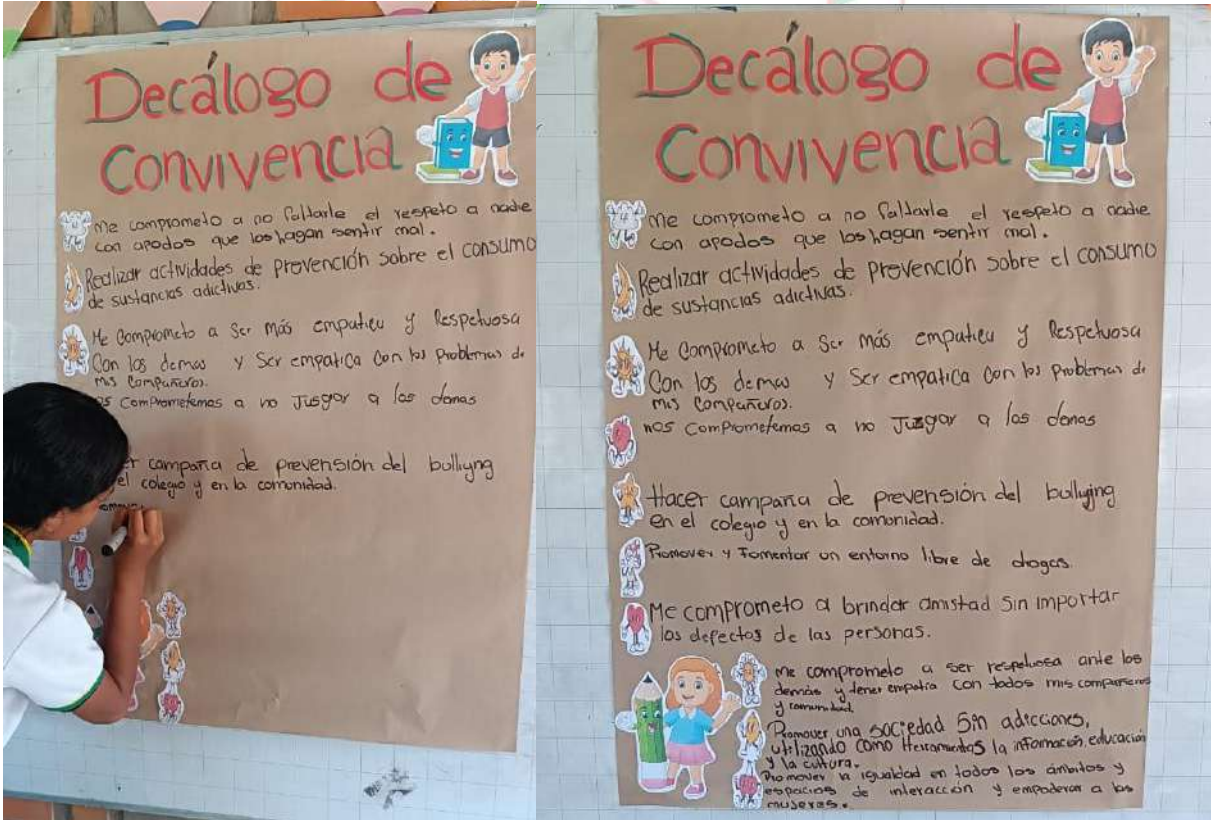 Decálogo de
Convivencia
me comprometo a no faltarle el respeto a nadie
con apodos que los hagan sentir mal.
Realizar actividades de prevención sobre el consumo
de sustancias adictivas.
Me Comprometo a Ser más empatica y Respetuosa
Con los demas y Ser empatica Con los Problemas de
mis Compañeros.
os Comprometemos a no Jusgar a los demas
er campaña de prevensión del bullyng
el colegio y en la comunidad.
Decálogo de
Convivencia
me comprometo a no faltarle el respeto a nadie
con apodos que los hagan sentir mal.
Realizar actividades de prevención sobre el consumo
de sustancias adictivas.
Me Comprometo a Ser más empatica y Respetuosa
Con los demas y Ser empatica Con los Problemas de
mis Compañeros.
nos Comprometemos a no Juzgar a los demas
Hacer campaña de prevensión del bullying
en el colegio y en la comonidad.
Promover y Fomentar un entorno libre de drogas.
Me comprometo a brindar amistad Sin importar
los defectos de las personas.
me comprometo a ser respetuosa ante los
demás y tener empatia con todos mis compañeros
y comunidad
Promover una sociedad Sin adicciones,
utilizando como Herramientas la información, educación
y la cultura.
Promover la igualdad en todos los ámbitos y
espacios de interacción y empoderar a las
mujeres.